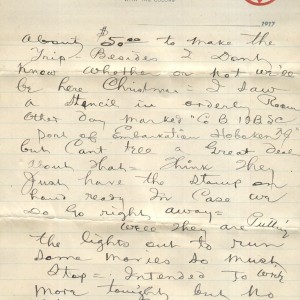 1917
about $50.00 to make the
Trip = Besides I Dont
Know whether or not we'll
be here Christmas = I saw
a Stencil in orderly Room
Other Day marked "Co B 19 BSC
Port of Embarkation Hoboken N.J.
but Cant tell a Great Deal
about that = Think They
Just have the Stamp on
hand ready In Case we
Do Go right away =
Well They are Putting
the lights out to run
Some Movies So Must
Stop = Intended To write
More tonight but No